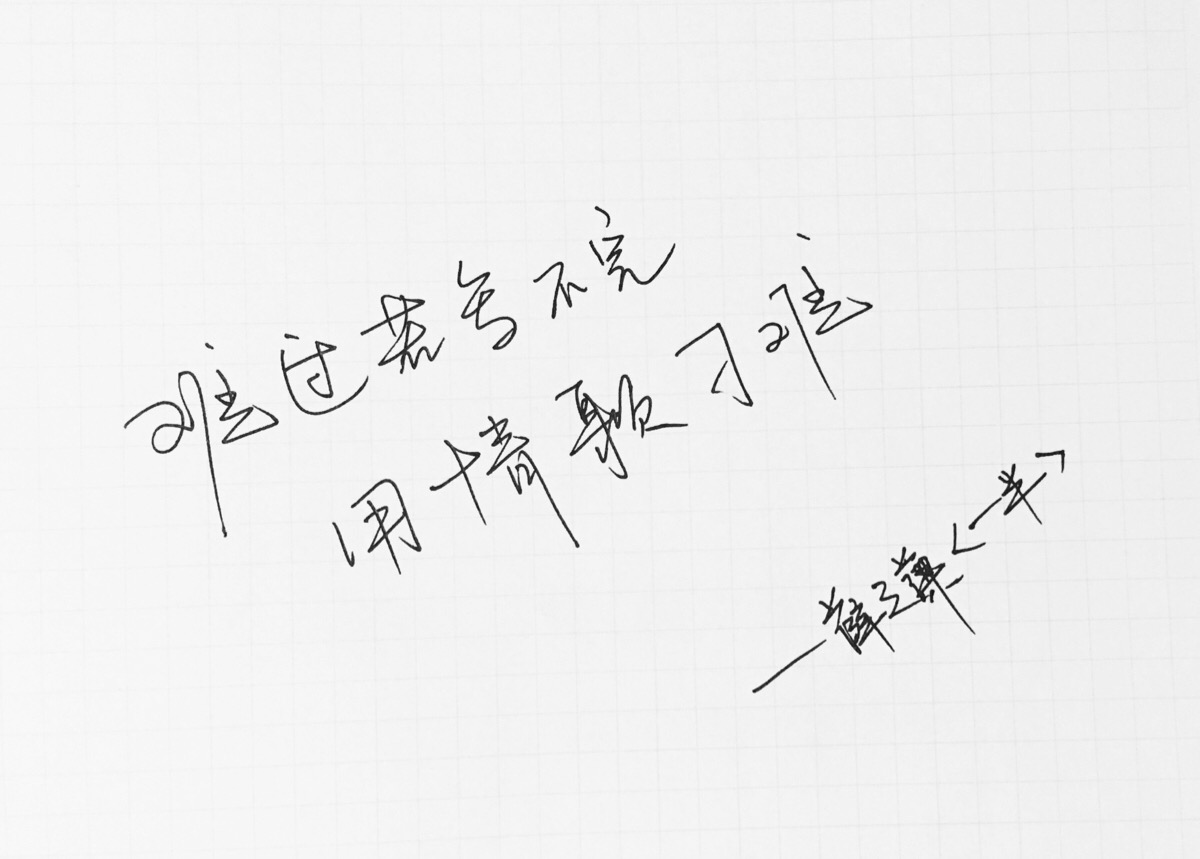 难过若写不完
用情歌刁难
—薛之谦<一半>